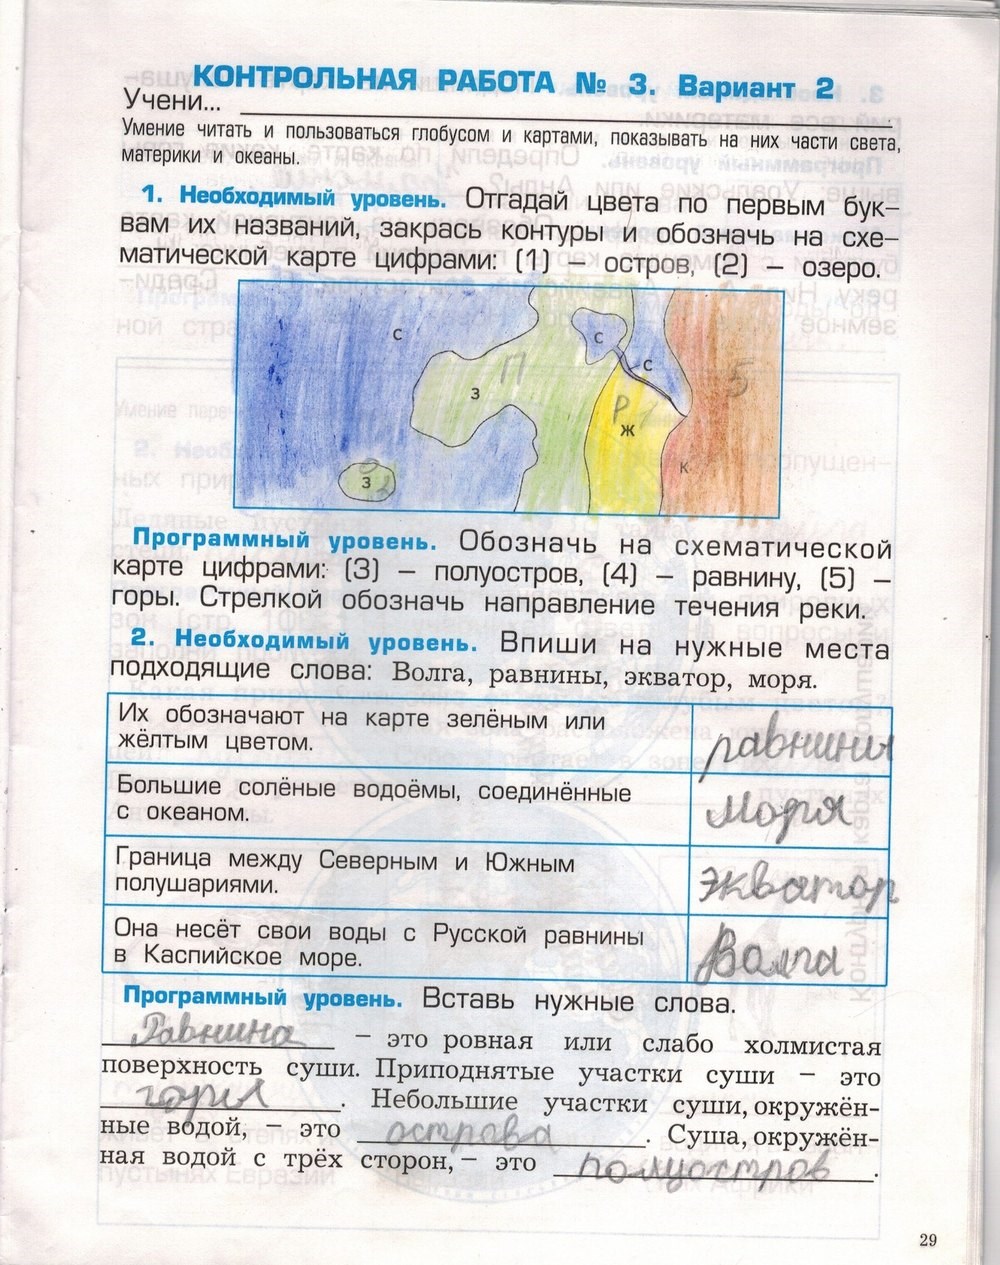 КОНТРОЛЬНАЯ РАБОТА № 3. Вариант 2
Учени...
Умение читать и пользоваться глобусом и картами, показывать на них части света,
материки и океаны.
1. Необходимый уровень. Отгадай цвета по первым бук-
вам их названий, закрась контуры и обозначь на схе-
матической карте цифрами: (1) – остров, (2) – озеро.
с
с
с
П
з
5
Р
ж
к
з
Программный уровень. Обозначь на схематической
карте цифрами: (3) – полуостров, (4) – равнину, (5) –
горы. Стрелкой обозначь направление течения реки.
2. Необходимый уровень. Впиши на нужные места
подходящие слова: Волга, равнины, экватор, моря.
Их обозначают на карте зелёным или
жёлтым цветом.
равнины
Большие солёные водоёмы, соединённые
с океаном.
моря
Граница между Северным и Южным
полушариями.
экватор
Она несёт свои воды с Русской равнины
в Каспийское море.
Волга
Программный уровень. Вставь нужные слова.
Равнина – это ровная или слабо холмистая
поверхность суши. Приподнятые участки суши – это
горы. Небольшие участки суши, окружён-
ные водой, – это острова. Суша, окружён-
ная водой с трёх сторон, – это полуостров.
29